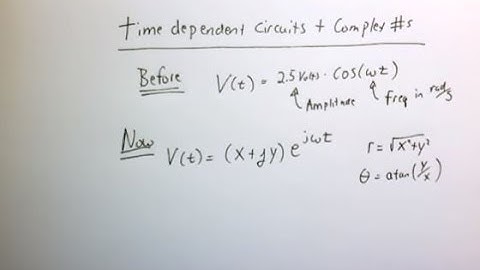 Time dependent circuits + Complex #s
Before V(t) = 2.5 Volts · cos(ωt)
Amplitude freq in rad/s
Now V(t) = (x+jy) e^jωt
r = √x²+y²
θ = atan(y/x)